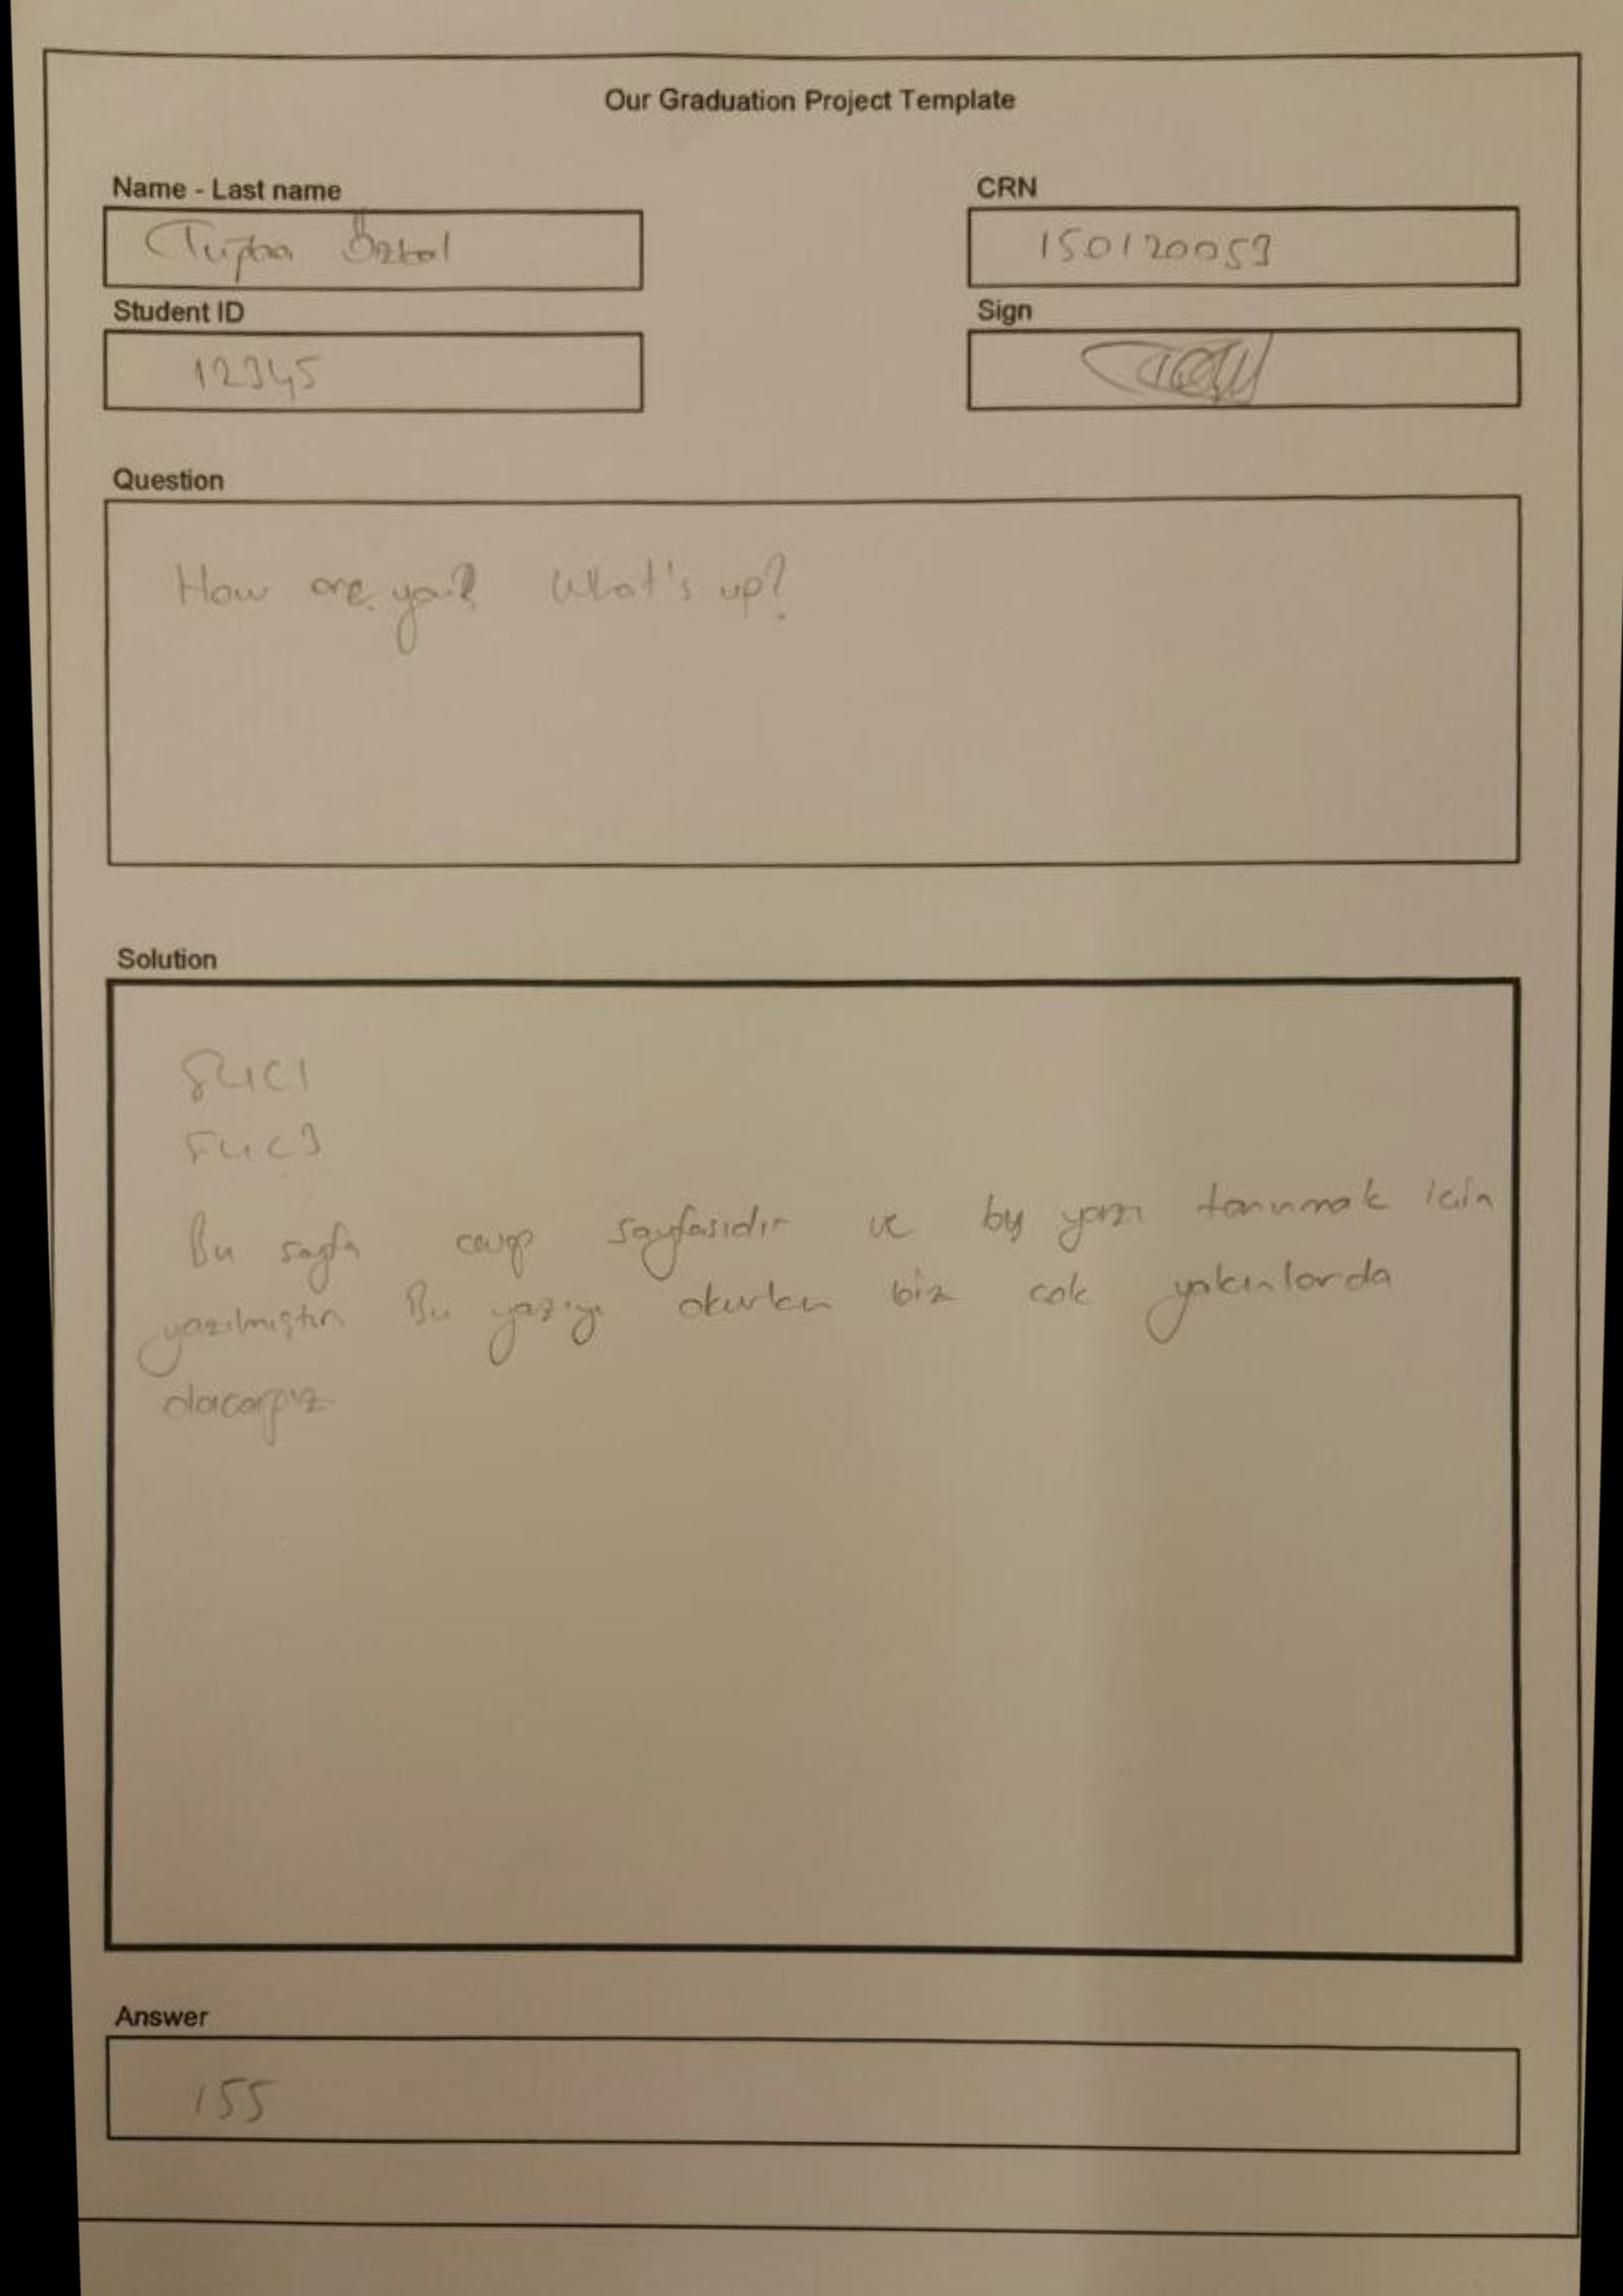 Our Graduation Project Template
Name - Last name
CRN
Tuğba Öztal
150120059
Student ID
Sign
12345
Question
How are you? What's up?
Solution
Bu sayfa cevap sayfasıdır ve bu yazı tanınmak icin
yazılmıştır Bu yazıyı okurken biz cok yakınlarda
olacağız
Answer
155